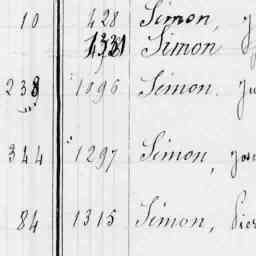 10 428 Simon,
1331 Simon
238 1096 Simon.
344 1297 Simon,
84 1315 Simon,